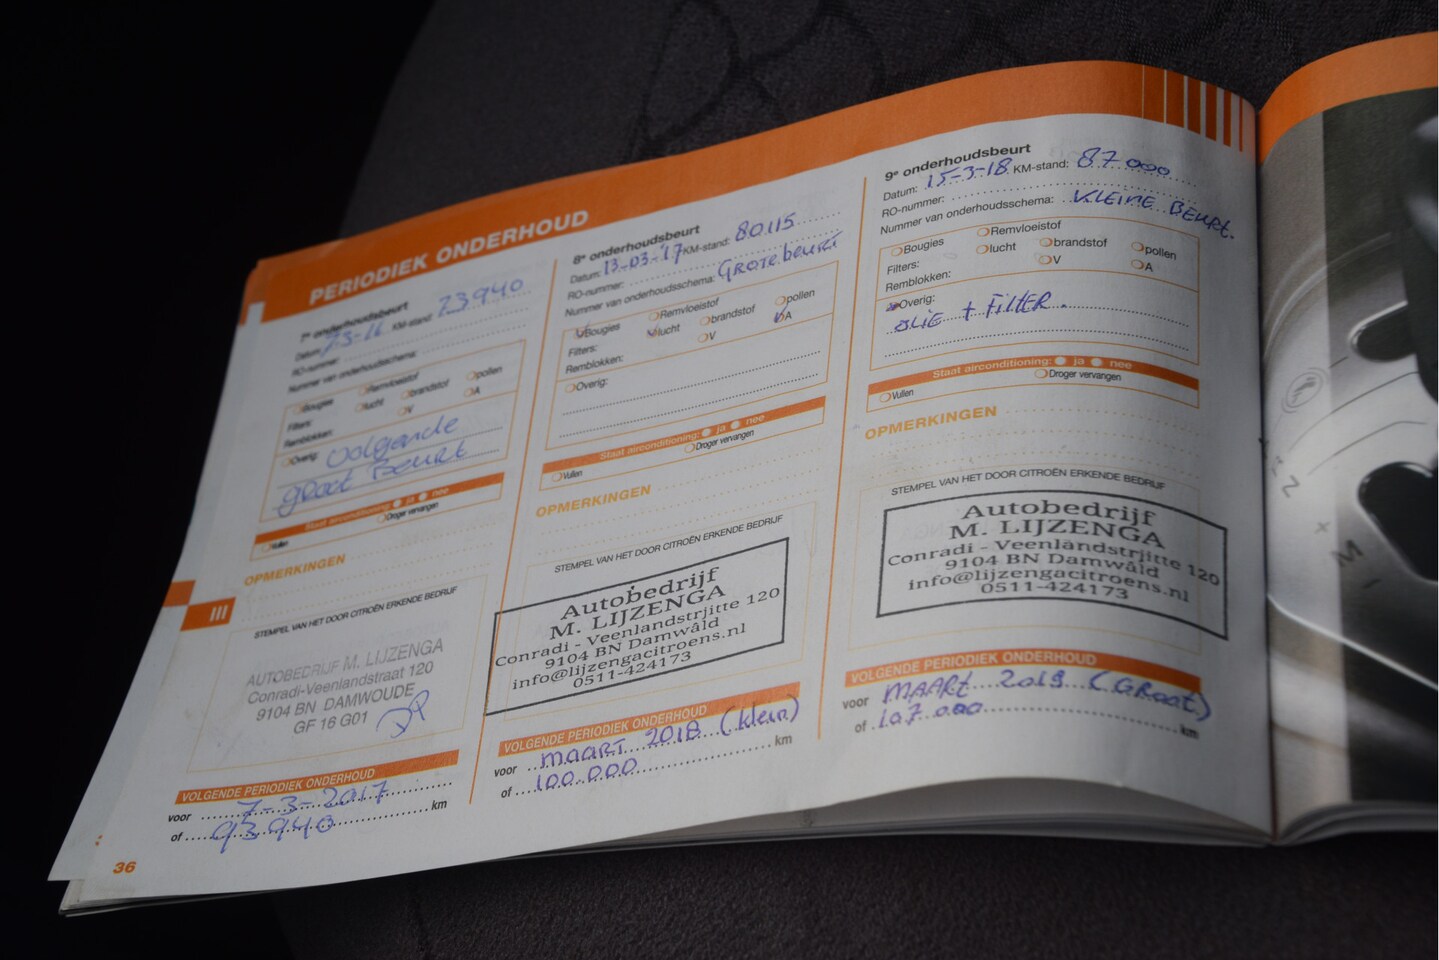 PERIODIEK ONDERHOUD
7e onderhoudsbeurt
Datum: KM-stand: 73940
RO-nummer:
Nummer van onderhoudsschema:
Bougies Remvloeistof
Filters: lucht brandstof pollen
Remblokken: V A
Overig: volgende
groot Beurt
Staat airconditioning: ja nee
Vullen Droger vervangen
OPMERKINGEN
STEMPEL VAN HET DOOR CITROËN ERKENDE BEDRIJF
AUTOBEDRIJF M. LIJZENGA
Conradi-Veenlandstraat 120
9104 BN DAMWOUDE
GF 16 G01
VOLGENDE PERIODIEK ONDERHOUD
voor 7-3-2017
of 93940 km
8e onderhoudsbeurt
Datum: 13-03-'17 KM-stand: 80115
RO-nummer:
Nummer van onderhoudsschema: GROTE beurt
Bougies Remvloeistof
Filters: lucht brandstof pollen
Remblokken: V A
Overig:
Staat airconditioning: ja nee
Vullen Droger vervangen
OPMERKINGEN
STEMPEL VAN HET DOOR CITROËN ERKENDE BEDRIJF
Autobedrijf
M. LIJZENGA
Conradi - Veenlandstrjitte 120
9104 BN Damwâld
info@lijzengacitroens.nl
0511-424173
VOLGENDE PERIODIEK ONDERHOUD
voor maart 2018 (klein)
of 100.000 km
9e onderhoudsbeurt
Datum: 15-3-18 KM-stand: 87000
RO-nummer:
Nummer van onderhoudsschema: KLEINE BEURT.
Bougies Remvloeistof
Filters: lucht brandstof pollen
Remblokken: V A
Overig:
OLIE + FILTER.
Staat airconditioning: ja nee
Vullen Droger vervangen
OPMERKINGEN
STEMPEL VAN HET DOOR CITROËN ERKENDE BEDRIJF
Autobedrijf
M. LIJZENGA
Conradi - Veenlandstrjitte 120
9104 BN Damwâld
info@lijzengacitroens.nl
0511-424173
VOLGENDE PERIODIEK ONDERHOUD
voor MAART 2019 (GROOT)
of 107.000 km
III
36